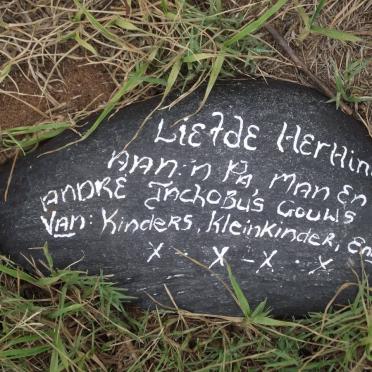 Liefde Herhin
aan: 'n Pa, man en
Andre Jachobus Gouws
Van: Kinders, Kleinkinder, En
x x - x . x